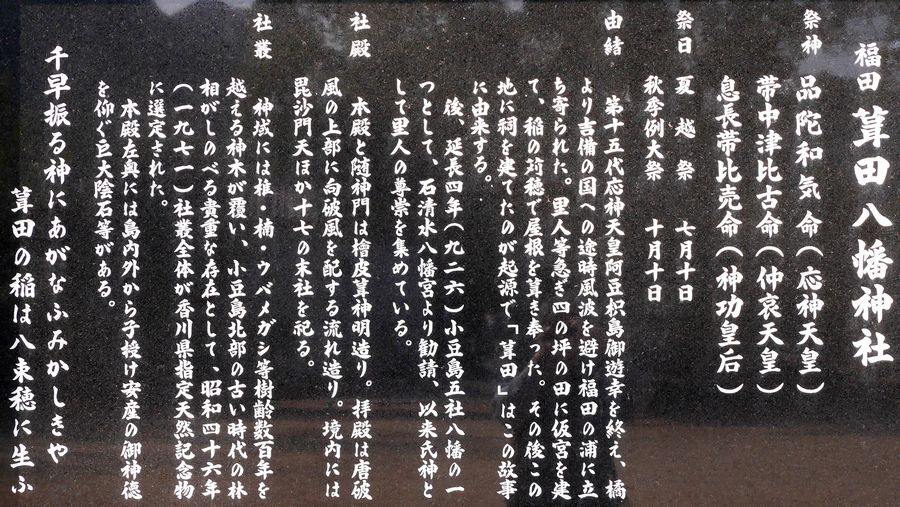 福田 葺田八幡神社
祭神 品陀和気命(応神天皇)
帯中津比古命(仲哀天皇)
息長帯比売命(神功皇后)
祭日 夏越祭 七月十日
秋季例大祭 十月十日
由緒 第十五代応神天皇阿豆枳島御遊幸を終え、橘
より吉備の国への途時風波を避け福田の浦に立
ち寄られた。里人等急ぎ四の坪の田に仮宮を建
て、稲の苅穂で屋根を葺き奉った。その後この
地に祠を建てたのが起源で「葺田」はこの故事
に由来する。
後、延長四年(九二六)小豆島五社八幡の一
つとして、石清水八幡宮より勧請、以来氏神と
して里人の尊崇を集めている。
社殿 本殿と随神門は檜皮葺神明造り。拝殿は唐破
風の上部に向破風を配する流れ造り。境内には
毘沙門天ほか十七の末社を祀る。
社叢 神域には椎・楠・ウバメガシ等樹齢数百年を
越える神木が覆い、小豆島北部の古い時代の林
相がしのべる貴重な存在として、昭和四十六年
(一九七一)社叢全体が香川県指定天然記念物
に選定された。
本殿左奥には島内外から子授け安産の御神徳
を仰ぐ巨大陰石等がある。
千早振る神にあがなふみかしきや
葺田の稲は八束穂に生ふ